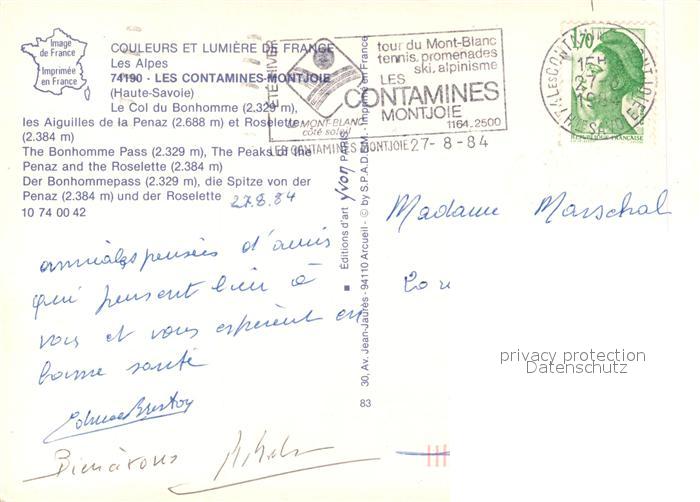 Image
de France
Imprimée
en France
COULEURS ET LUMIÈRE DE FRANCE
Les Alpes
74190 - LES CONTAMINES-MONTJOIE
(Haute-Savoie)
Le Col du Bonhomme (2.329 m),
les Aiguilles de la Penaz (2.688 m) et Roselette
(2.384 m)
The Bonhomme Pass (2.329 m), The Peaks of the
Penaz and the Roselette (2.384 m)
Der Bonhommepass (2.329 m), die Spitze von der
Penaz (2.384 m) und der Roselette
10 74 00 42
27.8.84
amicales pensées d'amis
qui pensent bien à
vous et vous espèrent en
bonne santé
Bien à vous
ÉTÉ HIVER
LE MONT-BLANC
côté soleil
tour du Mont-Blanc
tennis, promenades
ski, alpinisme
LES
CONTAMINES
MONTJOIE
1164.2500
LES CONTAMINES MONTJOIE 27-8-84
15H
27-8
1984
1,70
REPUBLIQUE FRANÇAISE
Editions d'art yvon PARIS
30, Av. Jean-Jaurès - 94110 Arcueil - © by S.P.A.D.E.M. - Imprimé en France
83
Madame Marschal
privacy protection
Datenschutz